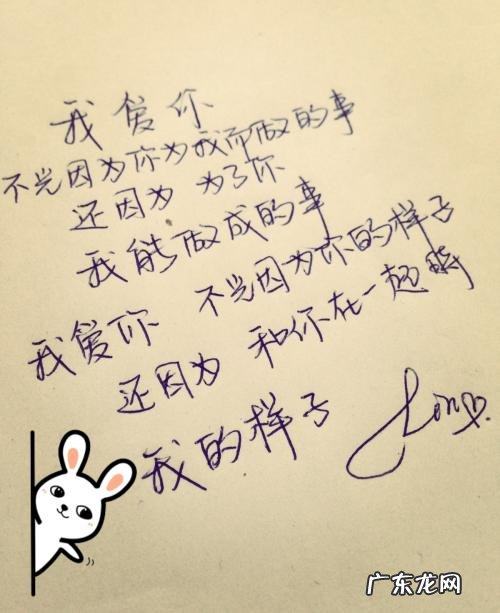 我爱你
不光因为你为我而做的事
还因为 为了你
我能做成的事
我爱你 不光因为你的样子
还因为 和你在一起时
我的样子
广东龙网